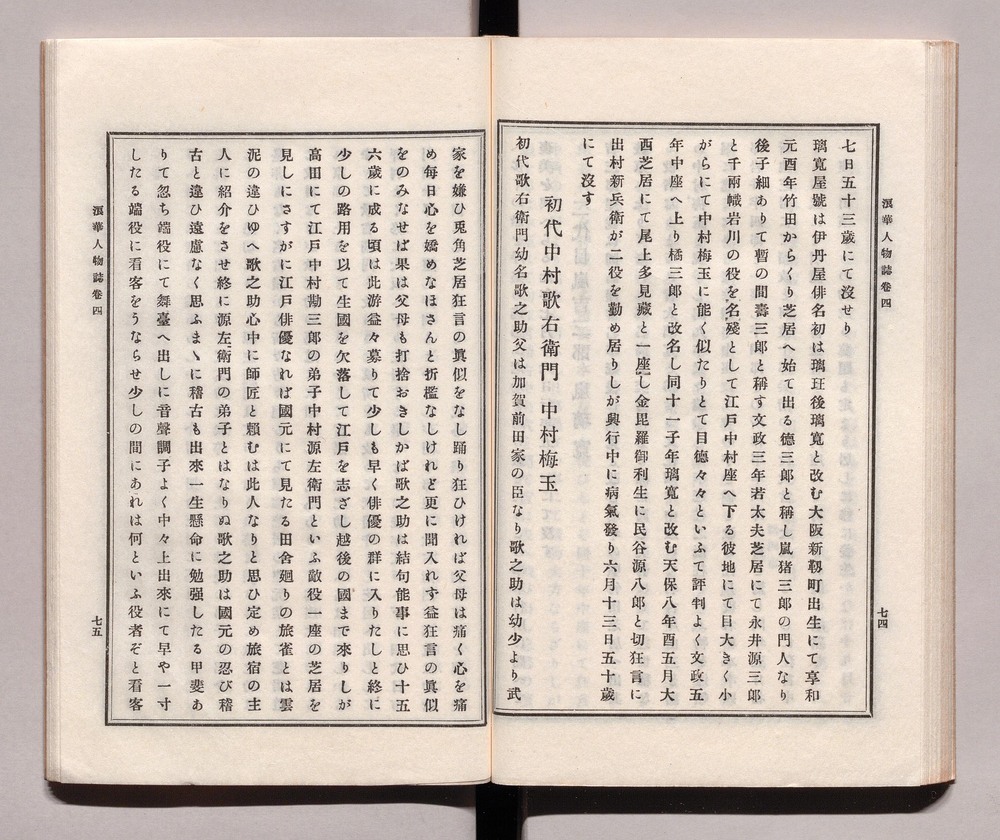 浪華人物誌卷四
七四
七日五十三歲にて沒せり
璃寬屋號は伊丹屋俳名初は璃玨後璃寬と改む大阪新靱町出生にて享和
元酉年竹田からくり芝居へ始て出る德三郎と稱し嵐猪三郎の門人なり
後子細ありて暫の間壽三郎と稱す文政三年若太夫芝居にて永井源三郎
と千兩幟岩川の役を名殘として江戶中村座へ下る彼地にて目大きく小
がらにて中村梅玉に能く似たりとて目德々々といふて評判よく文政五
年中座へ上り橘三郎と改名し同十一子年璃寬と改む天保八年酉五月大
西芝居にて尾上多見藏と一座し金毘羅御利生に民谷源八郎と切狂言に
出村新兵衞が二役を勤め居りしが興行中に病氣發り六月十三日五十歲
にて沒す
初代中村歌右衞門 中村梅玉
初代歌右衞門幼名歌之助父は加賀前田家の臣なり歌之助は幼少より武
家を嫌ひ兎角芝居狂言の眞似をなし踊り狂ひければ父母は痛く心を痛
め每日心を嬌めなほさんと折檻なしけれど更に聞入れす益狂言の眞似
をのみなせば果は父母も打捨おきしかば歌之助は結句能事に思ひ十五
六歲に成る頃は此游益々募りて少しも早く俳優の群に入りたしと終に
少しの路用を以て生國を欠落して江戶を志ざし越後の國まで來りしが
高田にて江戶中村勘三郎の弟子中村源左衞門といふ敵役一座の芝居を
見しにさすがに江戶俳優なれば國元にて見たる田舍廻りの旅雀とは雲
泥の違ひゆへ歌之助心中に師匠と賴むは此人なりと思ひ定め旅宿の主
人に紹介をさせ終に源左衞門の弟子とはなりぬ歌之助は國元の忍び稽
古と違ひ遠慮なく思ふまゝに稽古も出來一生懸命に勉强したる甲斐あ
りて忽ち端役にて舞臺へ出しに音聲調子よく中々上出來にて早や一寸
したる端役に看客をうならせ少しの間にあれは何といふ役者ぞと看客
浪華人物誌卷四
七五